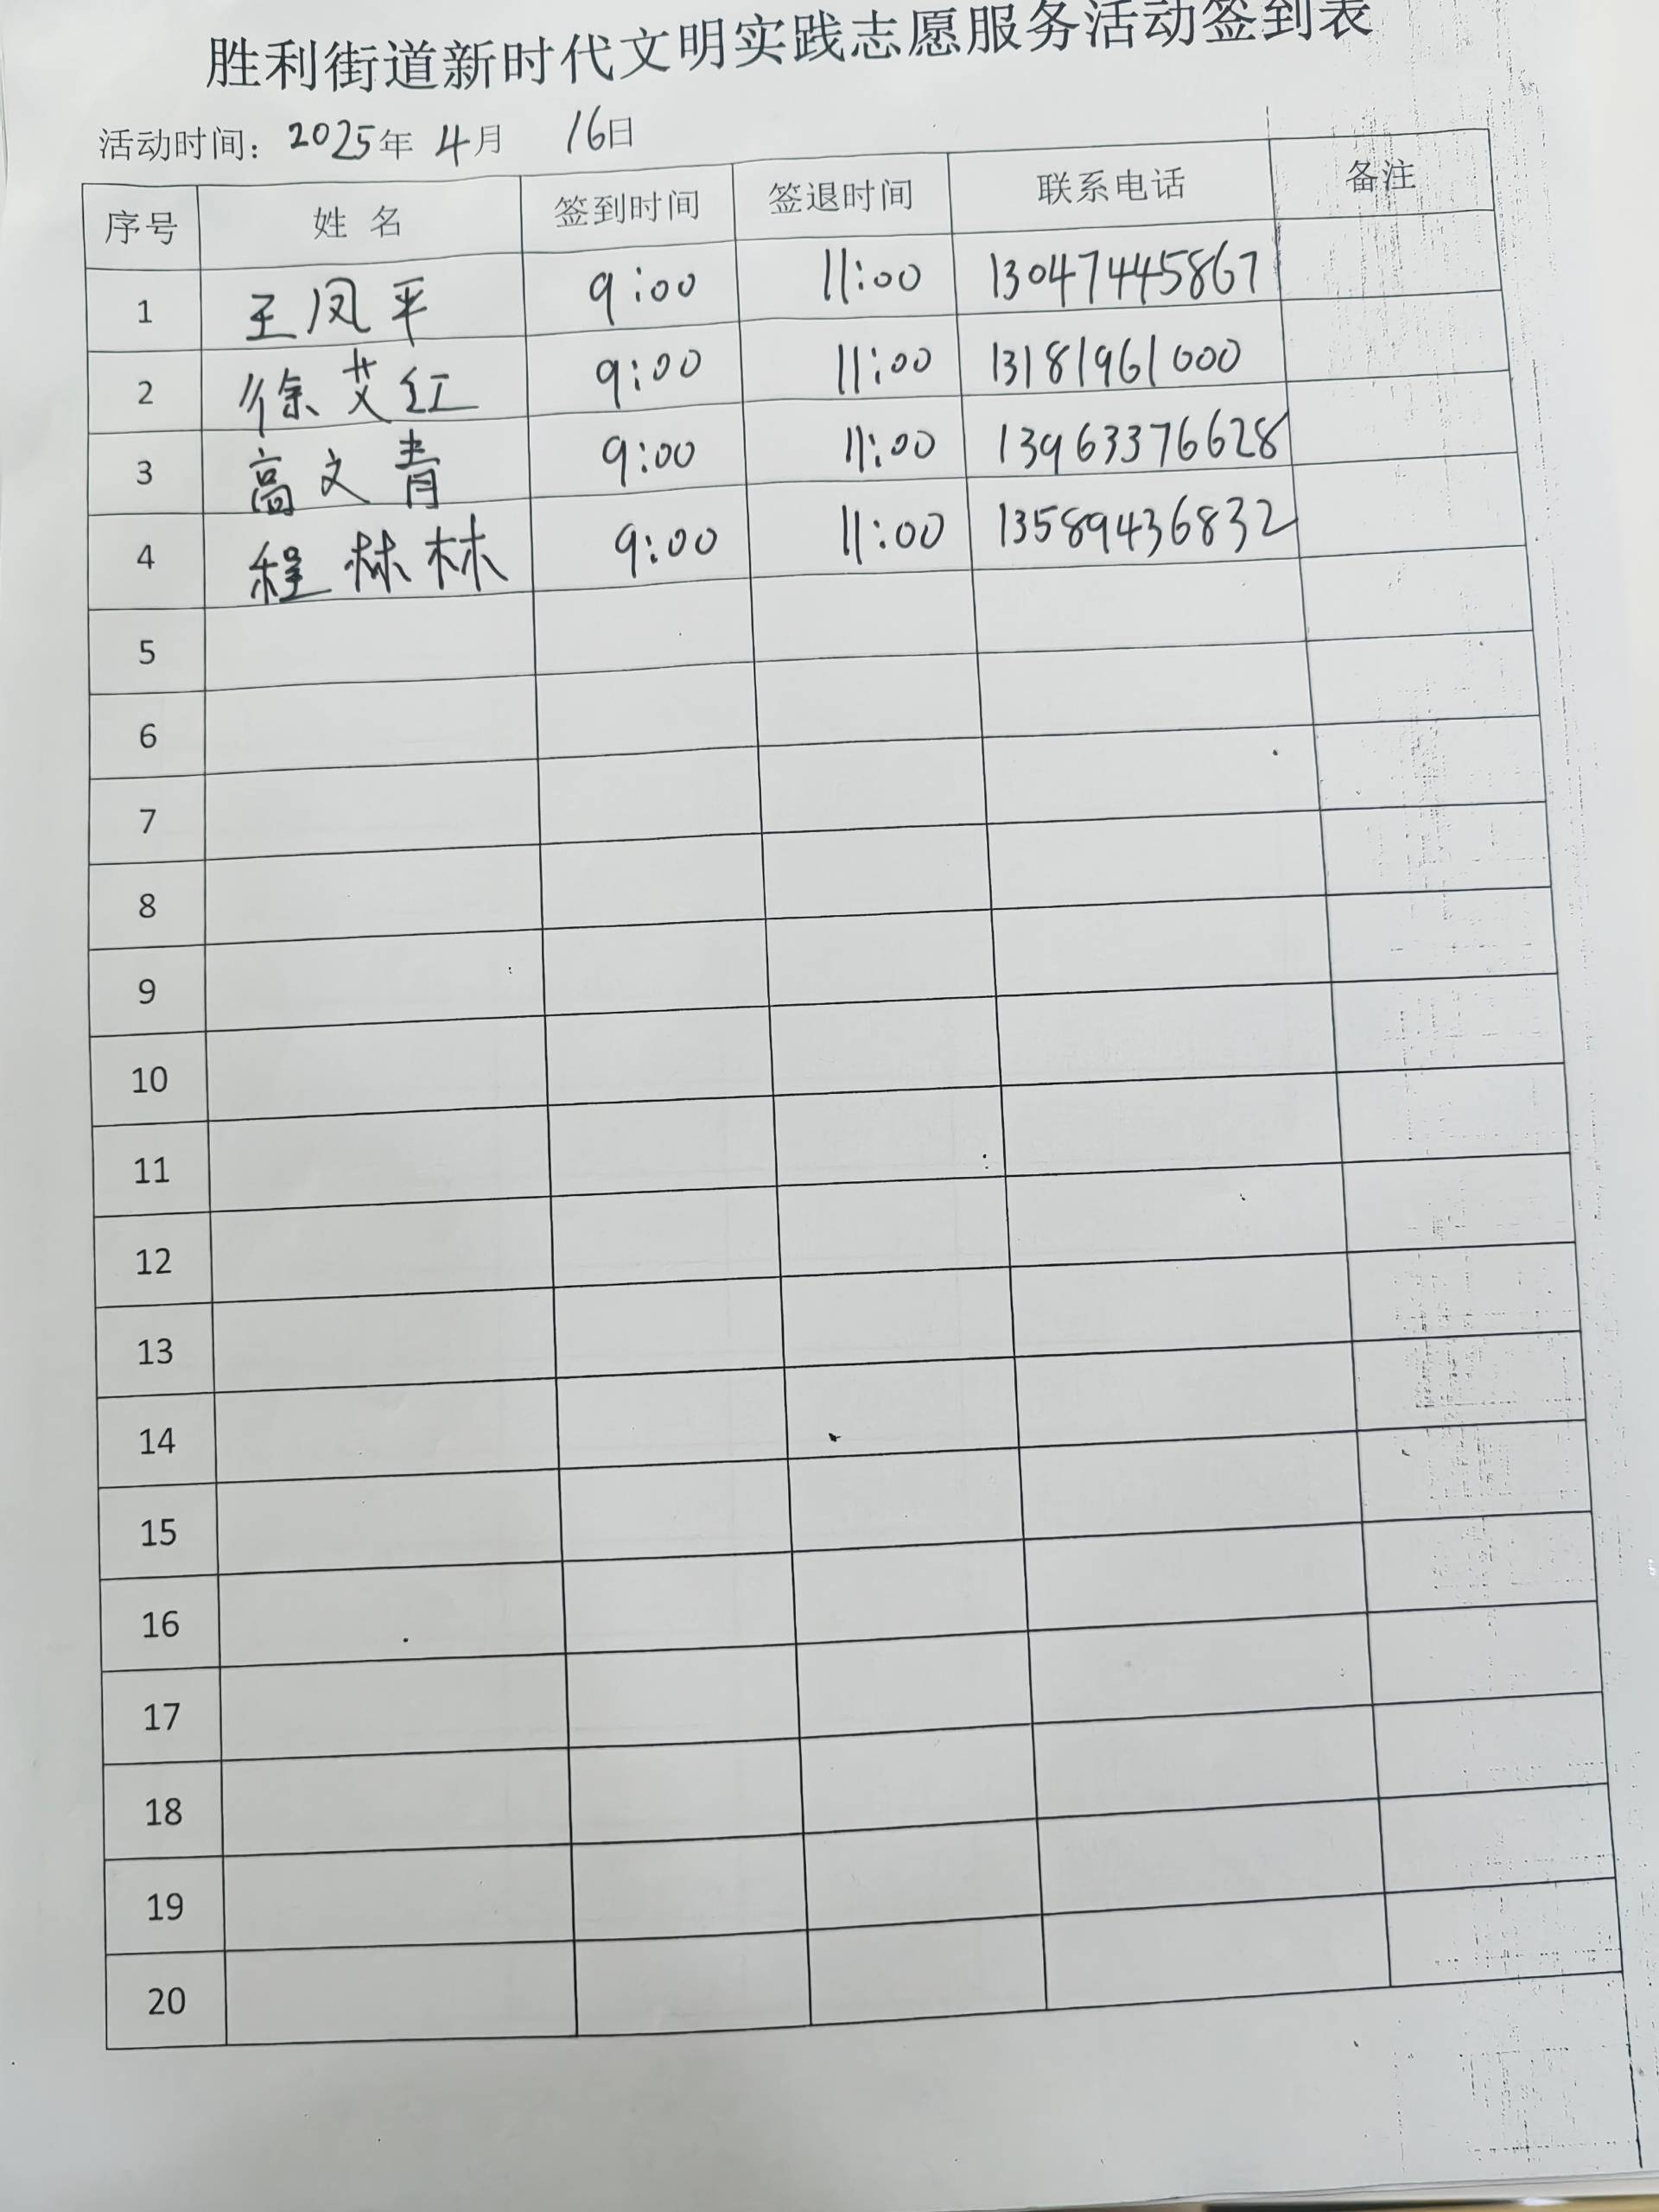 胜利街道新时代文明实践志愿服务活动签到表
活动时间：2025年 4月 16日
序号 姓 名 签到时间 签退时间 联系电话 备注
1 王凤平 9:00 11:00 13047445867
2 徐艾红 9:00 11:00 13181961000
3 高文青 9:00 11:00 13963376628
4 程林林 9:00 11:00 13589436832
5
6
7
8
9
10
11
12
13
14
15
16
17
18
19
20